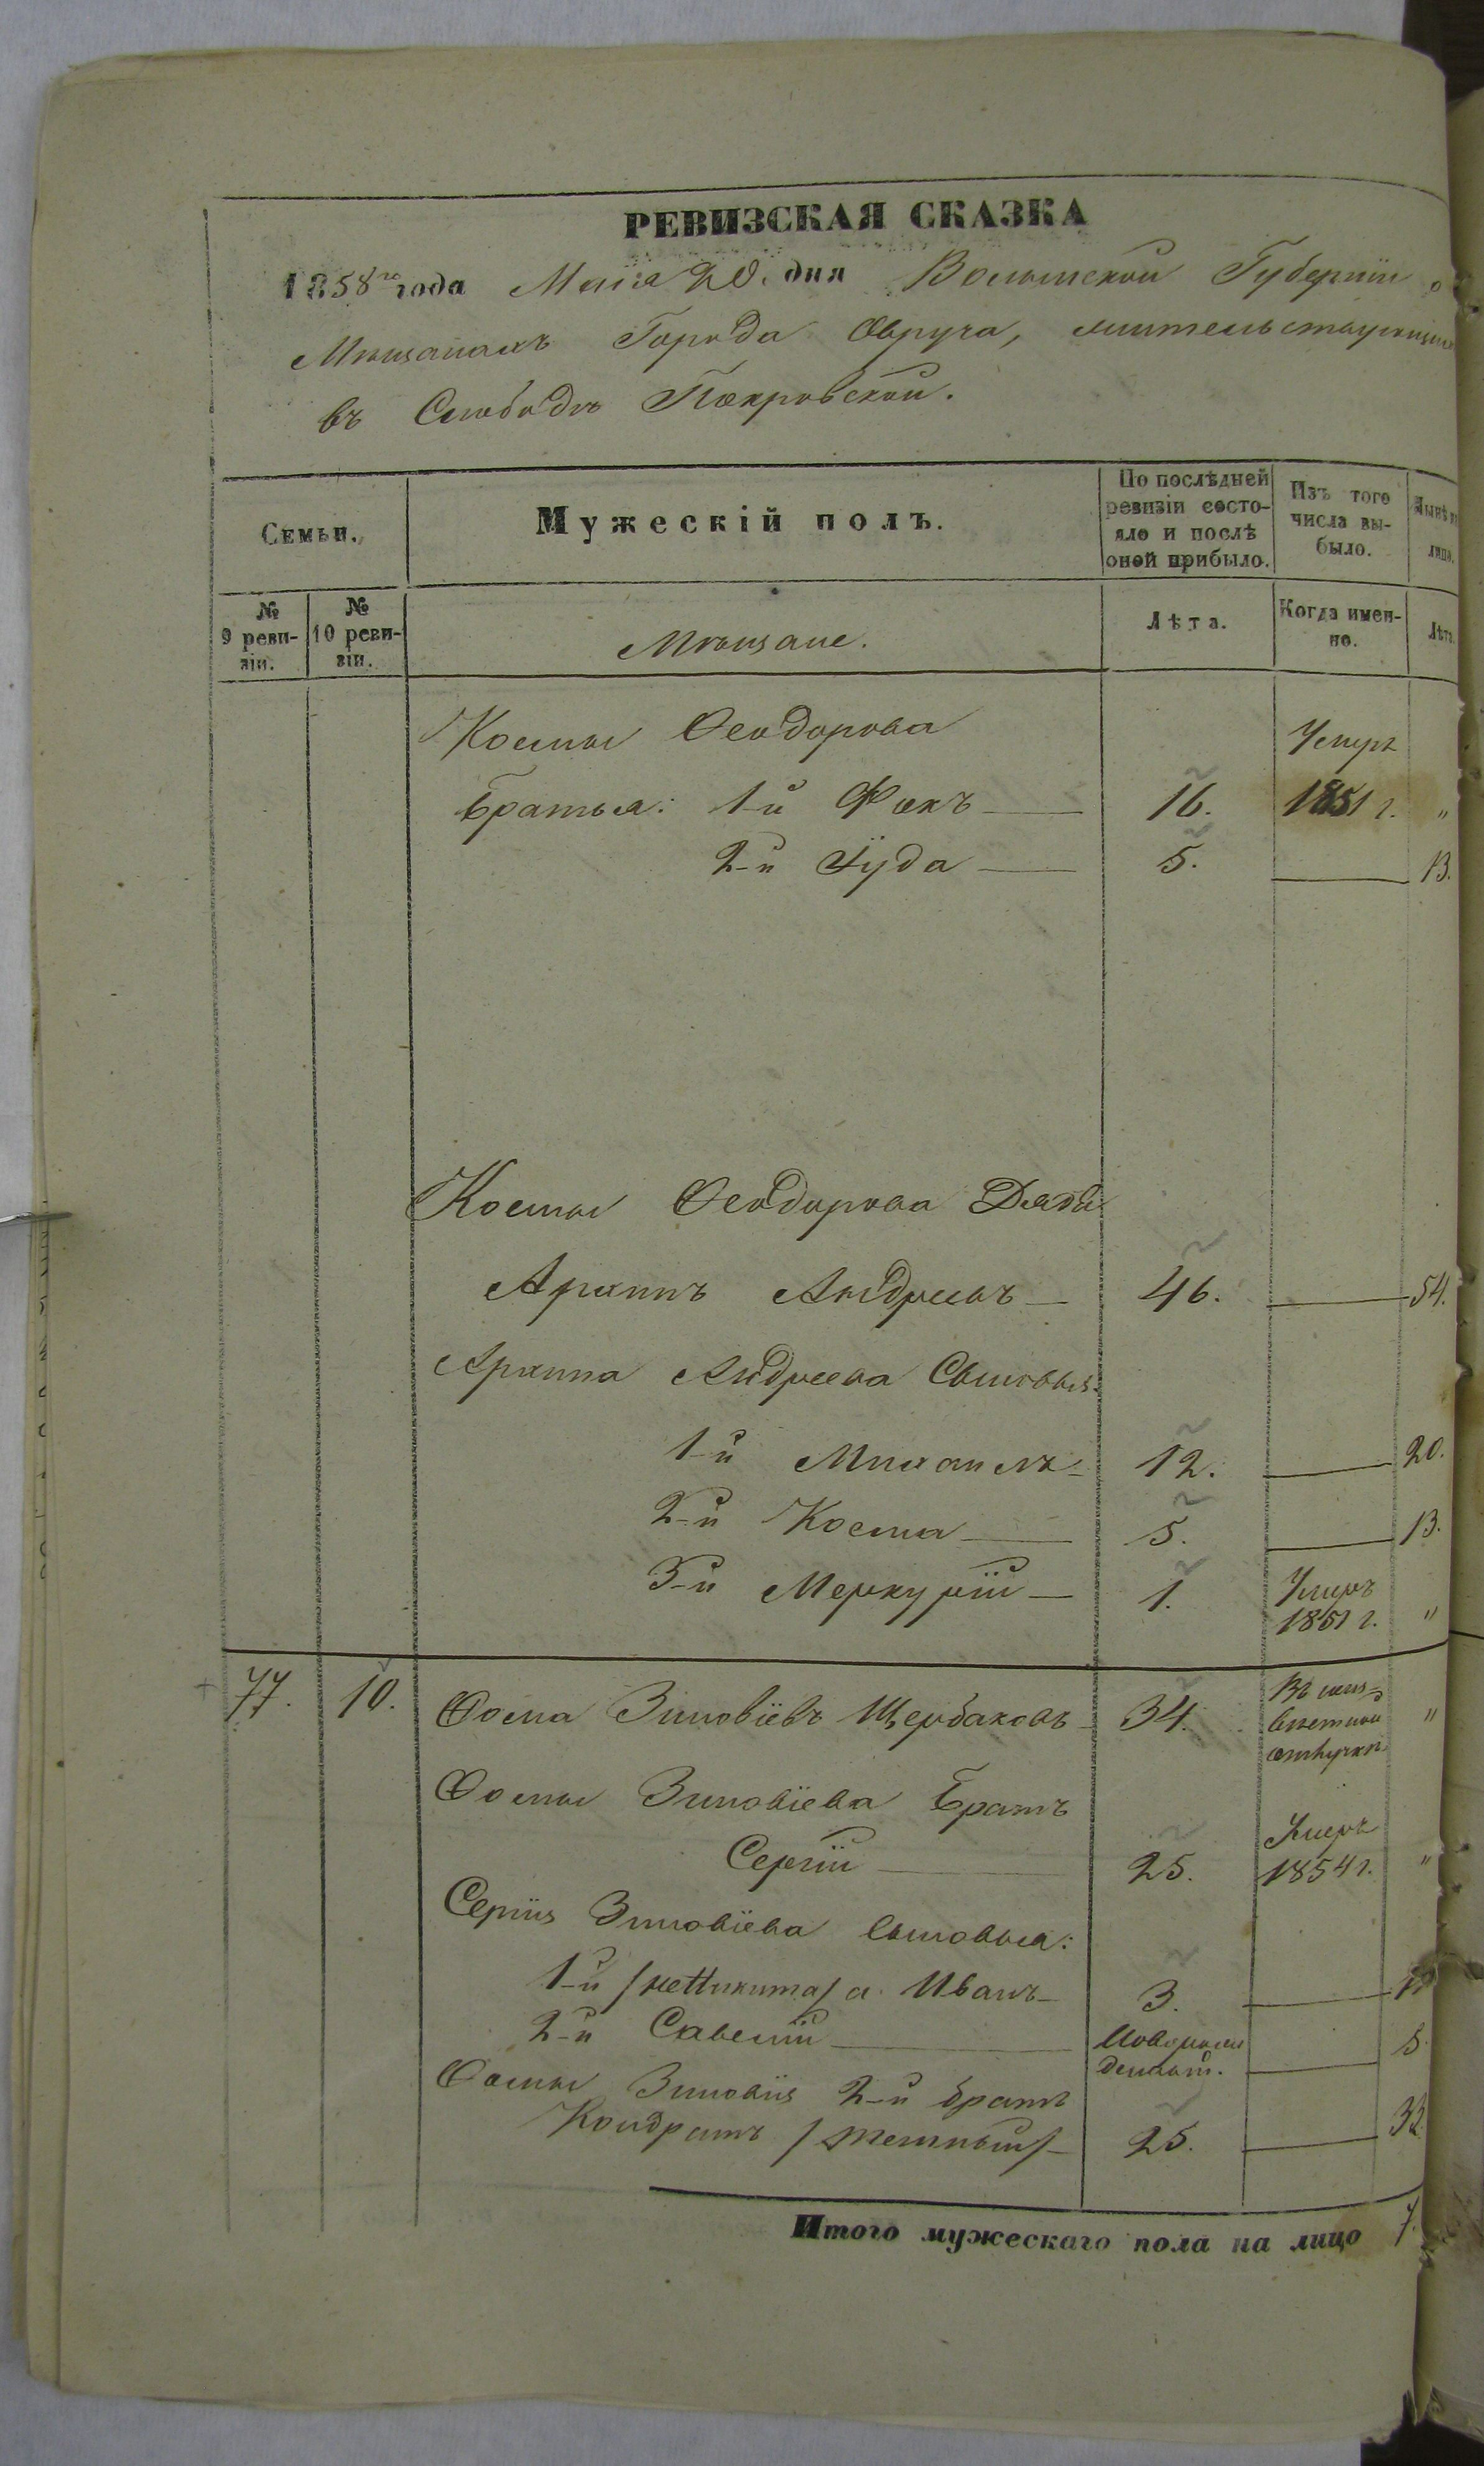 РЕВИЗСКАЯ СКАЗКА
1858го года Маія 20. дня Волынской Губерніи о
Мѣщанахъ Города Овруча, жительствующихъ
въ Слободѣ Покровской.
Семьи.
Мужескій полъ.
По послѣдней ревизіи состояло и послѣ оной прибыло.
Изъ того числа выбыло.
Нынѣ на лицо.
№ 9 ревизіи.
№ 10 ревизіи.
Мѣщане.
Лѣта.
Когда именно.
Лѣта.
Космы Ѳеодорова
Умеръ
Братья: 1-й Фокъ 16. 1851 г. "
2-й Іуда 5. 13.
Космы Ѳеодорова Дядя
Архипъ Андреевъ 46. 54.
Архипа Андреева Сыновья:
1-й Михаилъ 12. 20.
2-й Косма 5. 13.
3-й Меркурій 1. Умеръ 1851 г. "
77. 10. Ѳома Зиновіевъ Щербаковъ 34. отлучкѣ "
Ѳомы Зиновіева Братъ
Сергій 25. Умеръ 1854 г. "
Сергія Зиновіева Сыновья:
1-й /неНикита/ а Иванъ 3. 11
2-й Савелій Новорожденный. 5.
Ѳомы Зиновія 2-й братъ
Кондратъ 25. 33.
Итого мужескаго пола на лицо 7.